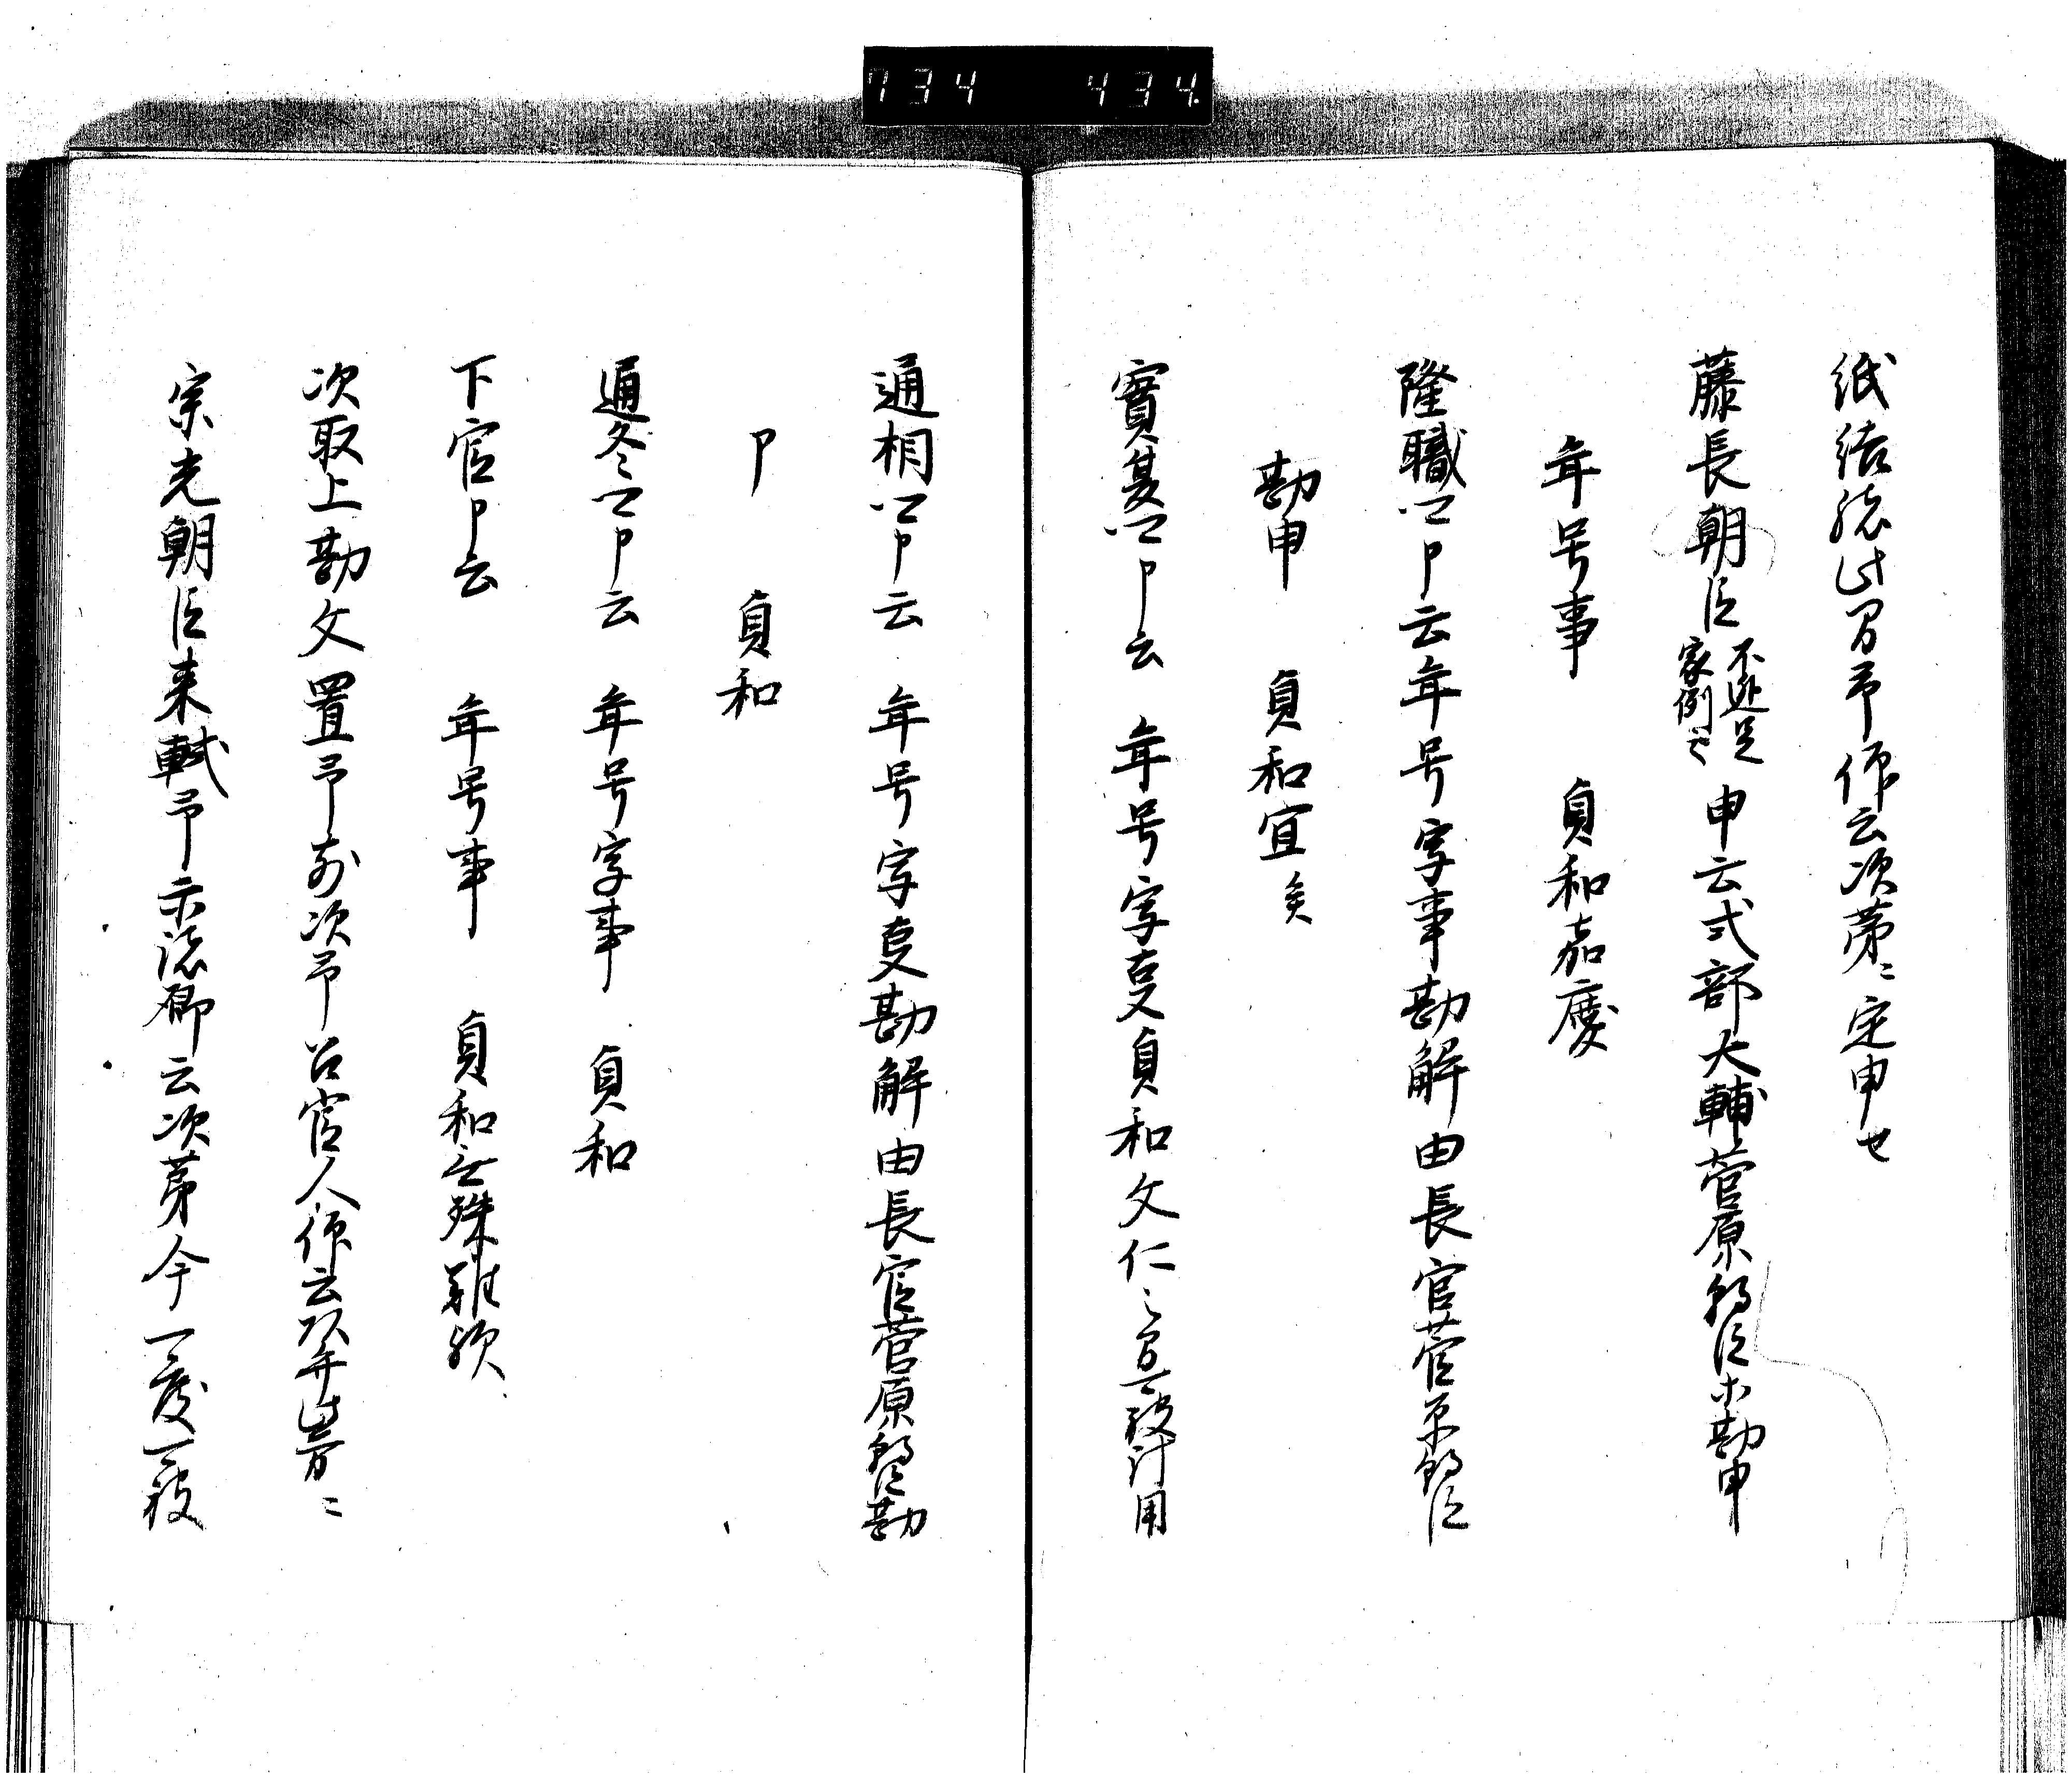 734 434
紙結続此間予仰云次第〻定申セ
藤長朝臣不述是家例云〻申云式部大輔菅原朝臣等勘申
年号事 貞和嘉慶
隆職卿申云年号字事勘解由長官菅原朝臣
勘申 貞和宜矣
實夏卿申云 年号字事貞和文仁之間可被計用
通相卿申云 年号字事勘解由長官菅原朝臣勘
申 貞和
通冬卿申云 年号字事 貞和
下官申云 年号事 貞和無殊難歟
次取上勘文置予前次予召官人仰云頭弁此方ニ
宗光朝臣来軾予示諸卿云次第今一度可被